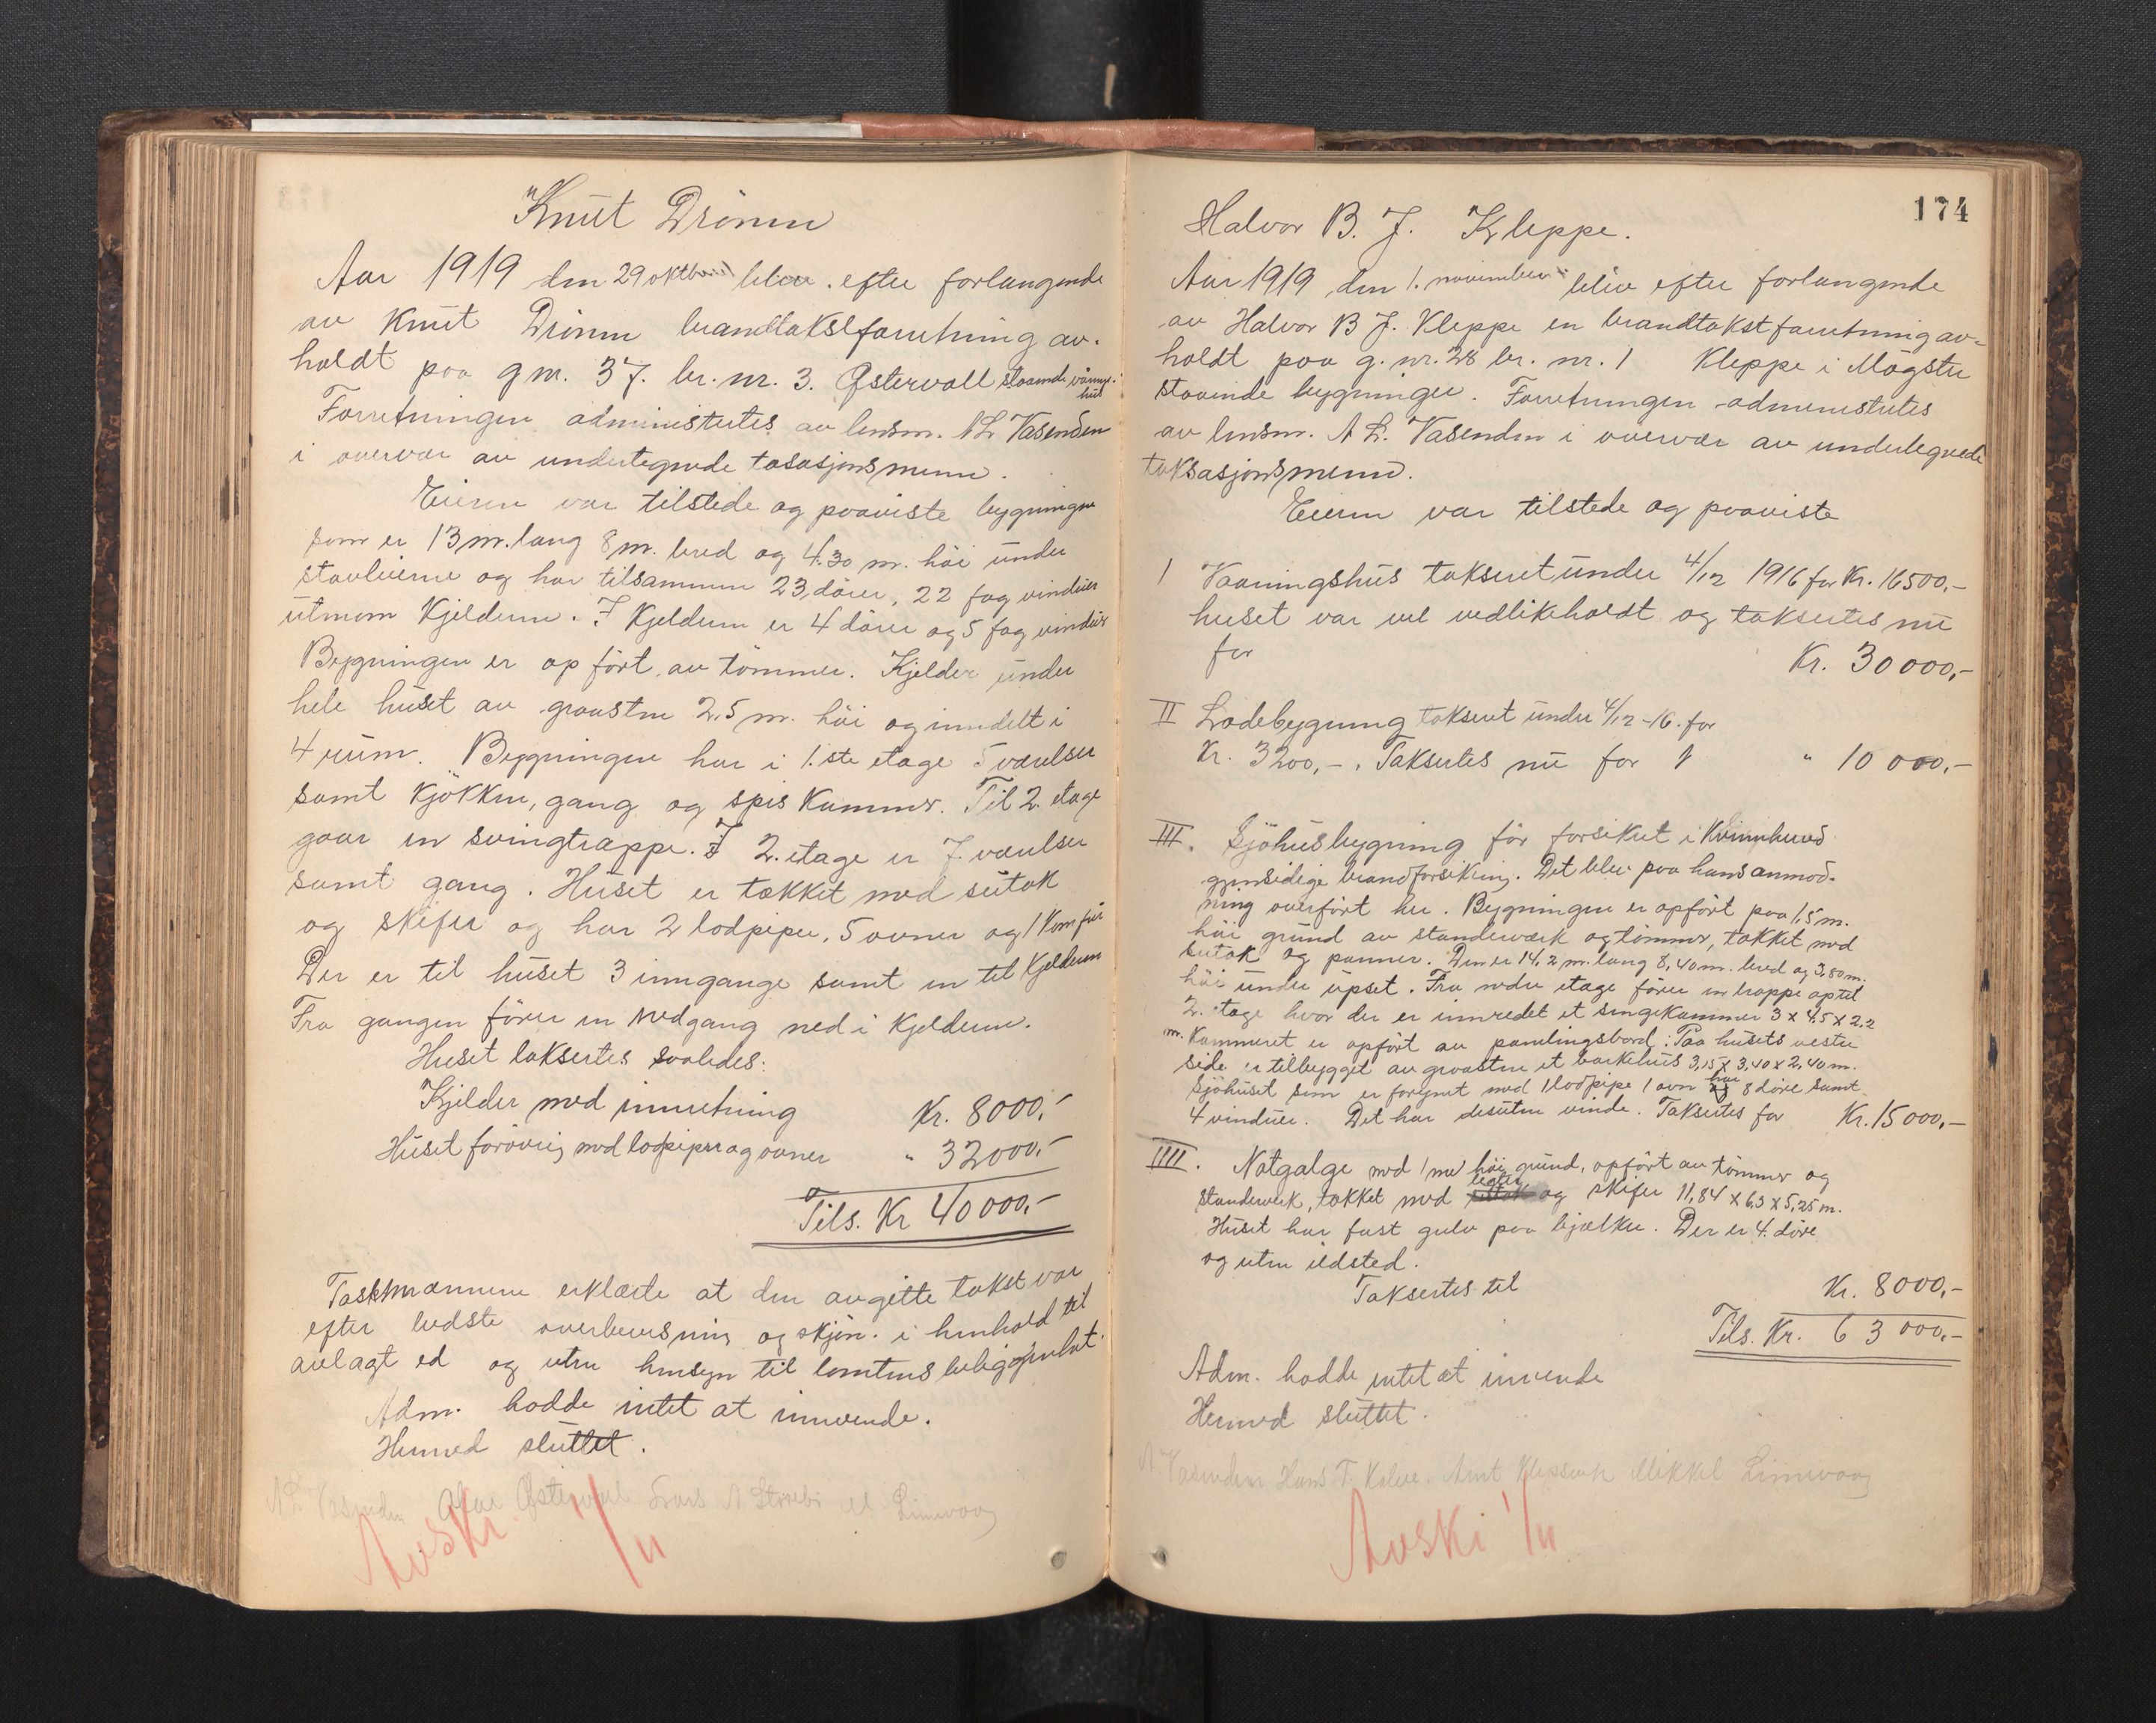 Knut Drönen
Aar 1919 den 29 oktber blev efter forlangende
av Knut Drönen brandtakstforretning av-
holdt paa g nr. 37. br. nr. 3. Østervoll staaende vånings-
hus
Forretningen administertes av lensm. N L Vasenden
i overvær av undertegnede tasasjonsmenn.
Eieren var tilstede og paaviste bygningen
som er 13 m. lang 8 m. bred og 4.30 m. höi under
stavleierne og har tilsammen 23 dörer, 22 fag vinduer
utenom Kjelderen. I Kjelderen er 4 dörer og 5 fag vinduer
Bygningen er op fört av tömmer. Kjelder under
hele huset av graasten 2,5 m. höi og inndelt i
4 rum. Bygningen har i 1.ste etage 5 værelser
samt Kjökken, gang og spis Kammer. Til 2. etage
gaar en svingtrappe. I 2. etage er 7 værelser
samt gang. Huset er tækket med sutak
og skifer og har 2 lodpiper, 5 ovner og 1 Komfür
Der er til huset 3 innganger samt en til Kjelderen
Fra gangen förer en nedgang ned i Kjelderen.
Huset taksertes saaledes:
Kjelder med innretning Kr. 8000,-
Huset forövrig med lodpiper og ovner " 32000,-
Tils. Kr 40000,-
Tasktmænnene erklærte at den avgitte takst var
efter bedste overbevisning og skjön. i henhold til
avlagt ed og uten hensyn til tomtens beliggenhet.
Adm. hadde intet at innvende.
Hermed sluttet.
N L Vasenden Olai Østervol Lars A Strøbø M Linevaag
Avskr. 1/11
174
Halvor B. J. Kleppe.
Aar 1919 den 1. november blev efter forlangende
av Halvor B J. Kleppe en brandtakstforretning av-
holdt paa g. nr. 28 br. nr. 1 Kleppe i Møgster
staaende bygninger. Forretningen administertes
av lensm. N L. Vasenden i overvær av undertegnede
taksasjonsmenn.
Eieren var tilstede og paaviste
1 Vaaningshus taksert under 4/12 1916 for Kr. 16500,-
huset var vel vedlikeholdt og taksertes nu
for Kr. 30000,-
II Ladebygning taksert under 4/12 -16. for
Kr. 3200,-. Taksertes nu for " 10 000,-
III. Sjöhusbygning för forsikret i Kvinnherred
gjensidige brandforsikring. Det blev paa hans anmod-
ning overfört her. Bygningen er opfört paa 1,5 m.
höi grund av standerværk og tömmer, tækket med
sutak og panner. Den er 14,2 m. lang 8,40 m. bred og 3,80 m.
höi under upset. Fra nedre etage förer en trappe op til
2. etage hvor der er innredet et sengekammer 3 x 4,5 x 2,2
m. Kammeret er opfört av panelingsbord. Paa husets vestre
side er tilbygget av graasten et barkehus 3,15 x 3,40 x 2,40 m.
Sjöhuset som er forsynt med 1 lodpipe 1 ovn har 8 döre samt
4 vinduer. Det har desuten vinde. Taksertes for Kr. 15000,-
IIII. Notgalge med 1 me höi grund, opfört av tömmer og
standerverk, tækket med legter og skifer 11,84 x 6,3 x 5,25 m.
Huset har fast gulv paa bjælker. Der er 4 döre
og uten ildsted.
Taksertes til Kr. 8000,-
Tils. Kr. 63000,-
Adm. hadde intet at innvende
Hermed sluttet.
N Vasenden Hans T. Kalve. Amt Klepsvik Mikkel Linevaag
Avskr 1/11